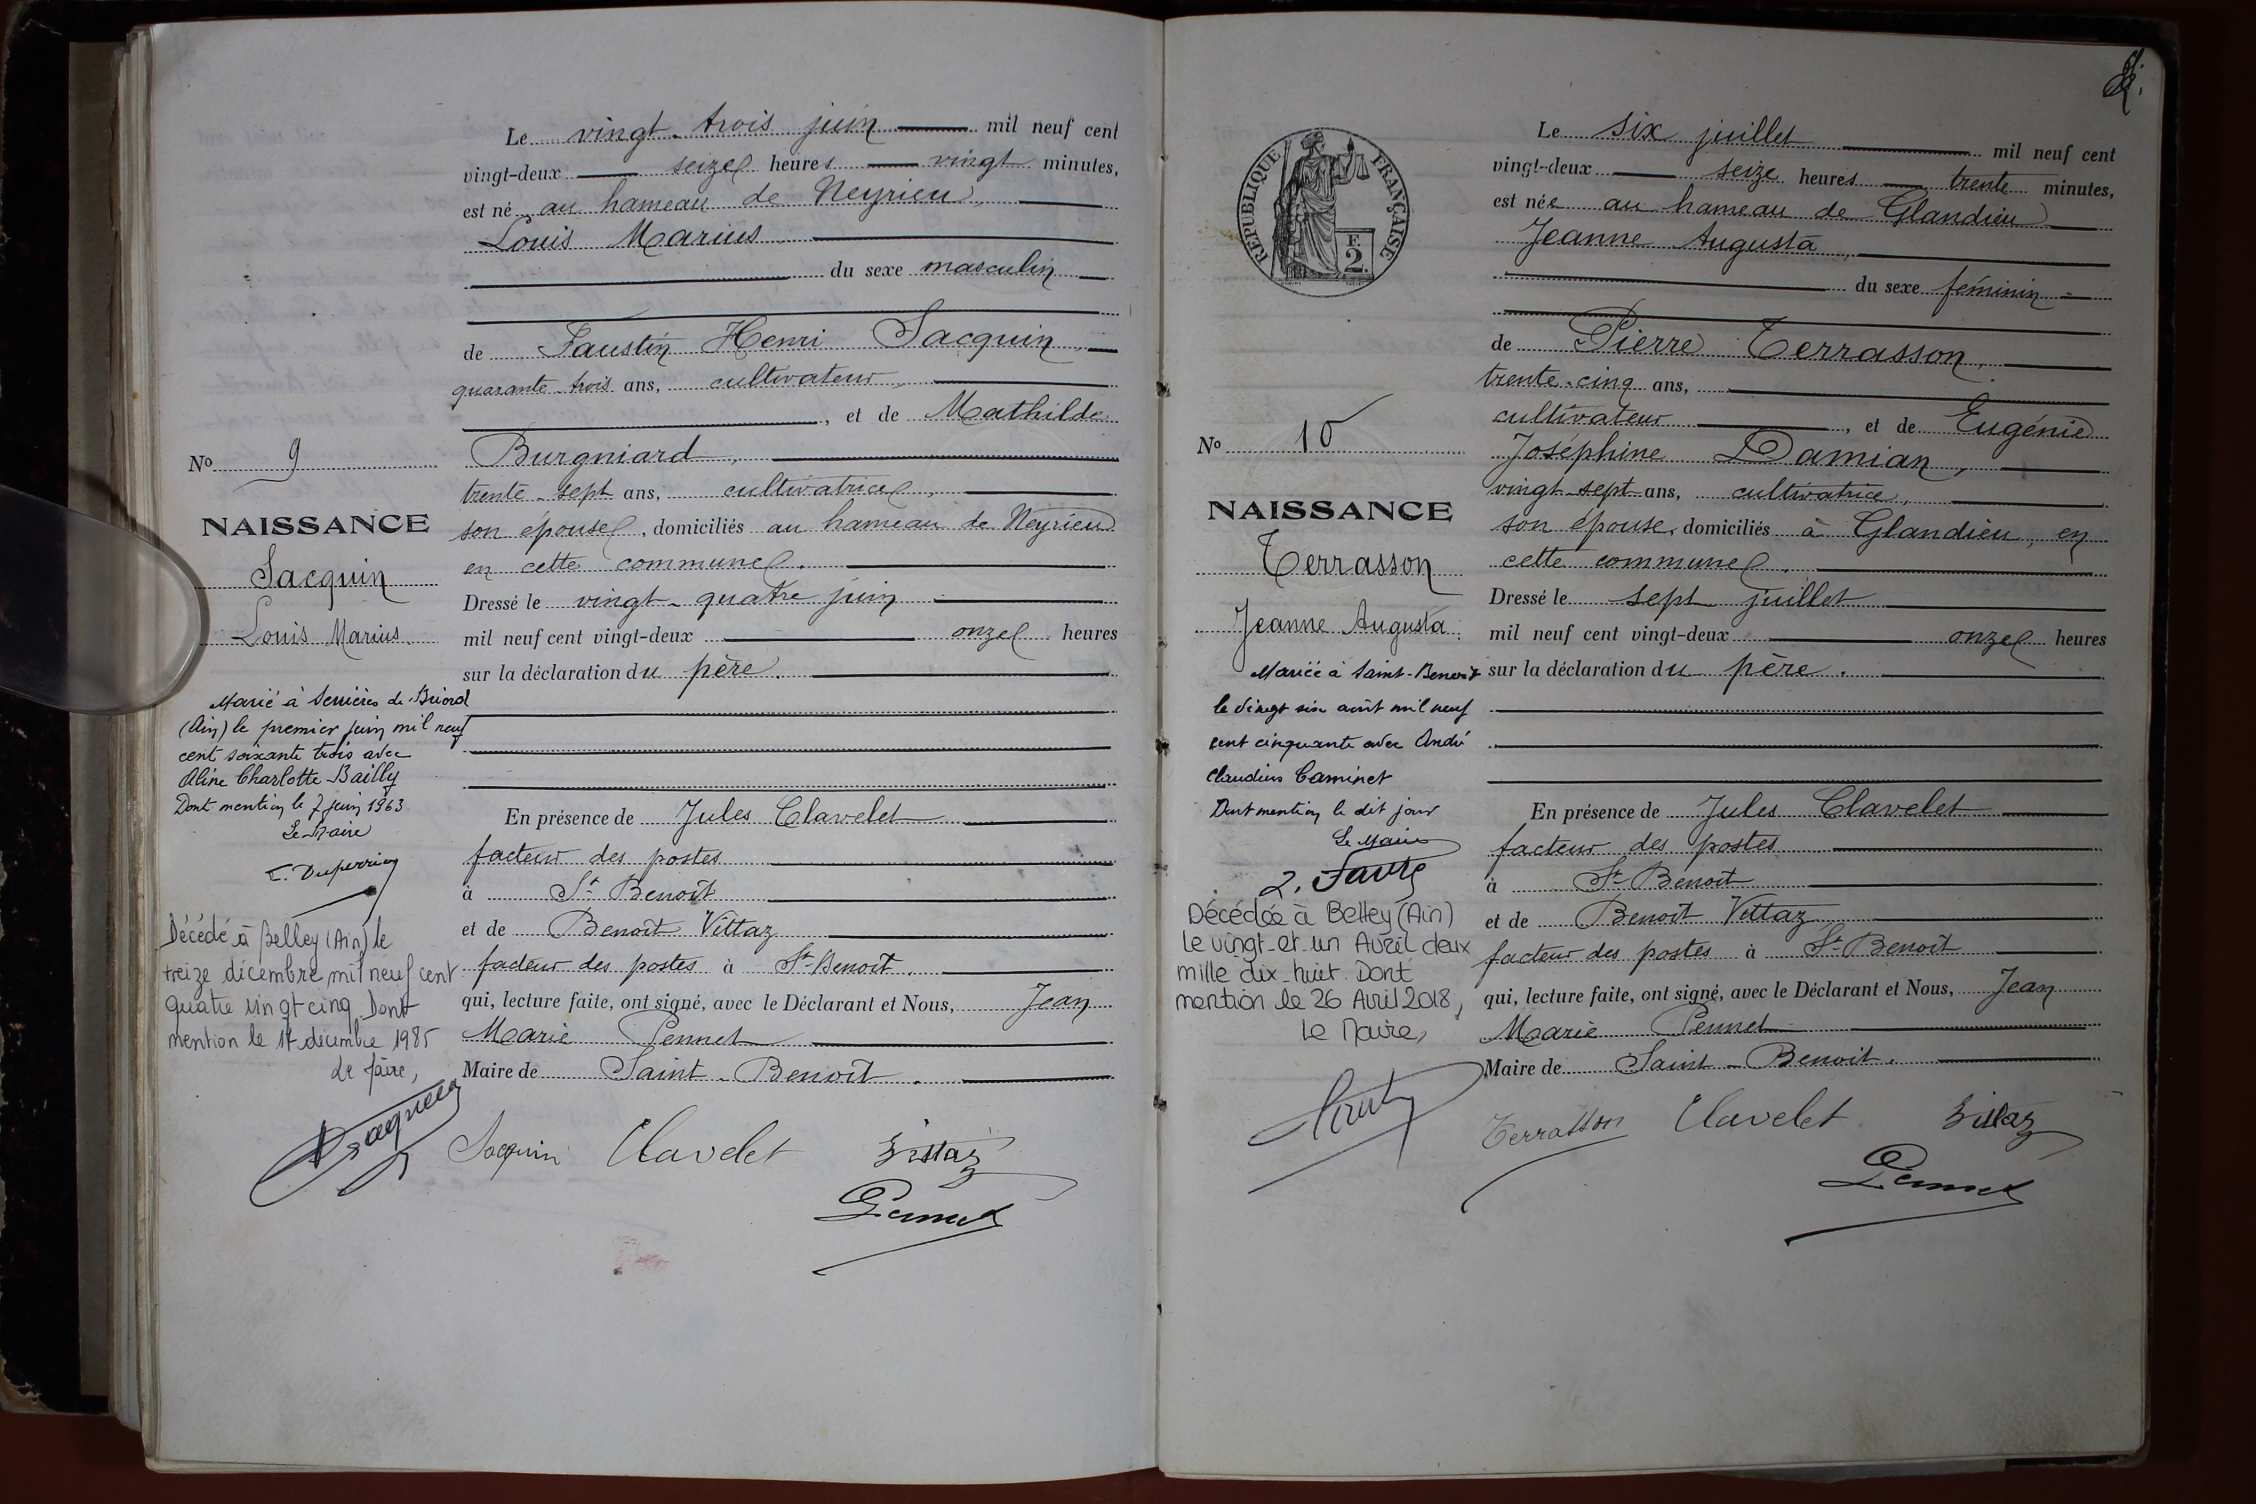 Le vingt-trois juin mil neuf cent
vingt-deux seize heures vingt minutes,
est né au hameau de Neyrieu,
Louis Marius
du sexe masculin
de Faustin Henri Jacquin,
quarante-trois ans, cultivateur,
, et de Mathilde
Burgniard,
trente-sept ans, cultivatrice,
son épouse, domiciliés au hameau de Neyrieu
en cette commune.
Dressé le vingt-quatre juin
mil neuf cent vingt-deux onze heures
sur la déclaration du père.
En présence de Jules Clavelet
facteur des postes
à St Benoît
et de Benoît Vittaz
facteur des postes à St Benoît.
qui, lecture faite, ont signé, avec le Déclarant et Nous, Jean
Marie Pennet
Maire de Saint-Benoît.
Jacquin Clavelet Vittaz
Pennet
No 9
NAISSANCE
Jacquin
Louis Marius
Marié à Serrières de Briord
(Ain) le premier juin mil neuf
cent soixante trois avec
Aline Charlotte Bailly
Dont mention le 7 juin 1963
Le Maire
Décédé à Belley (Ain) le
treize décembre mil neuf cent
quatre vingt cinq. Dont
mention le 17 décembre 1985
Le Maire,
Le six juillet mil neuf cent
vingt-deux seize heures trente minutes,
est née au hameau de Glandieu
Jeanne Augusta,
du sexe féminin
de Pierre Terrasson,
trente-cinq ans,
cultivateur, et de Eugénie
Joséphine Damian,
vingt-sept ans, cultivatrice,
son épouse, domiciliés à Glandieu, en
cette commune.
Dressé le sept juillet
mil neuf cent vingt-deux onze heures
sur la déclaration du père.
En présence de Jules Clavelet
facteur des postes
à St Benoît
et de Benoît Vittaz
facteur des postes à St Benoît
qui, lecture faite, ont signé, avec le Déclarant et Nous, Jean
Marie Pennet
Maire de Saint-Benoît.
Terrasson Clavelet Vittaz
Pennet
RÉPUBLIQUE FRANÇAISE
E
2
No 10
NAISSANCE
Terrasson
Jeanne Augusta
Mariée à Saint-Benoît
le vingt six août mil neuf
cent cinquante avec André
Claudius Caminet
Dont mention le dit jour
Le Maire
Favre
Décédée à Belley (Ain)
le vingt-et-un Avril deux
mille dix-huit. Dont
mention le 26 Avril 2018,
Le Maire,